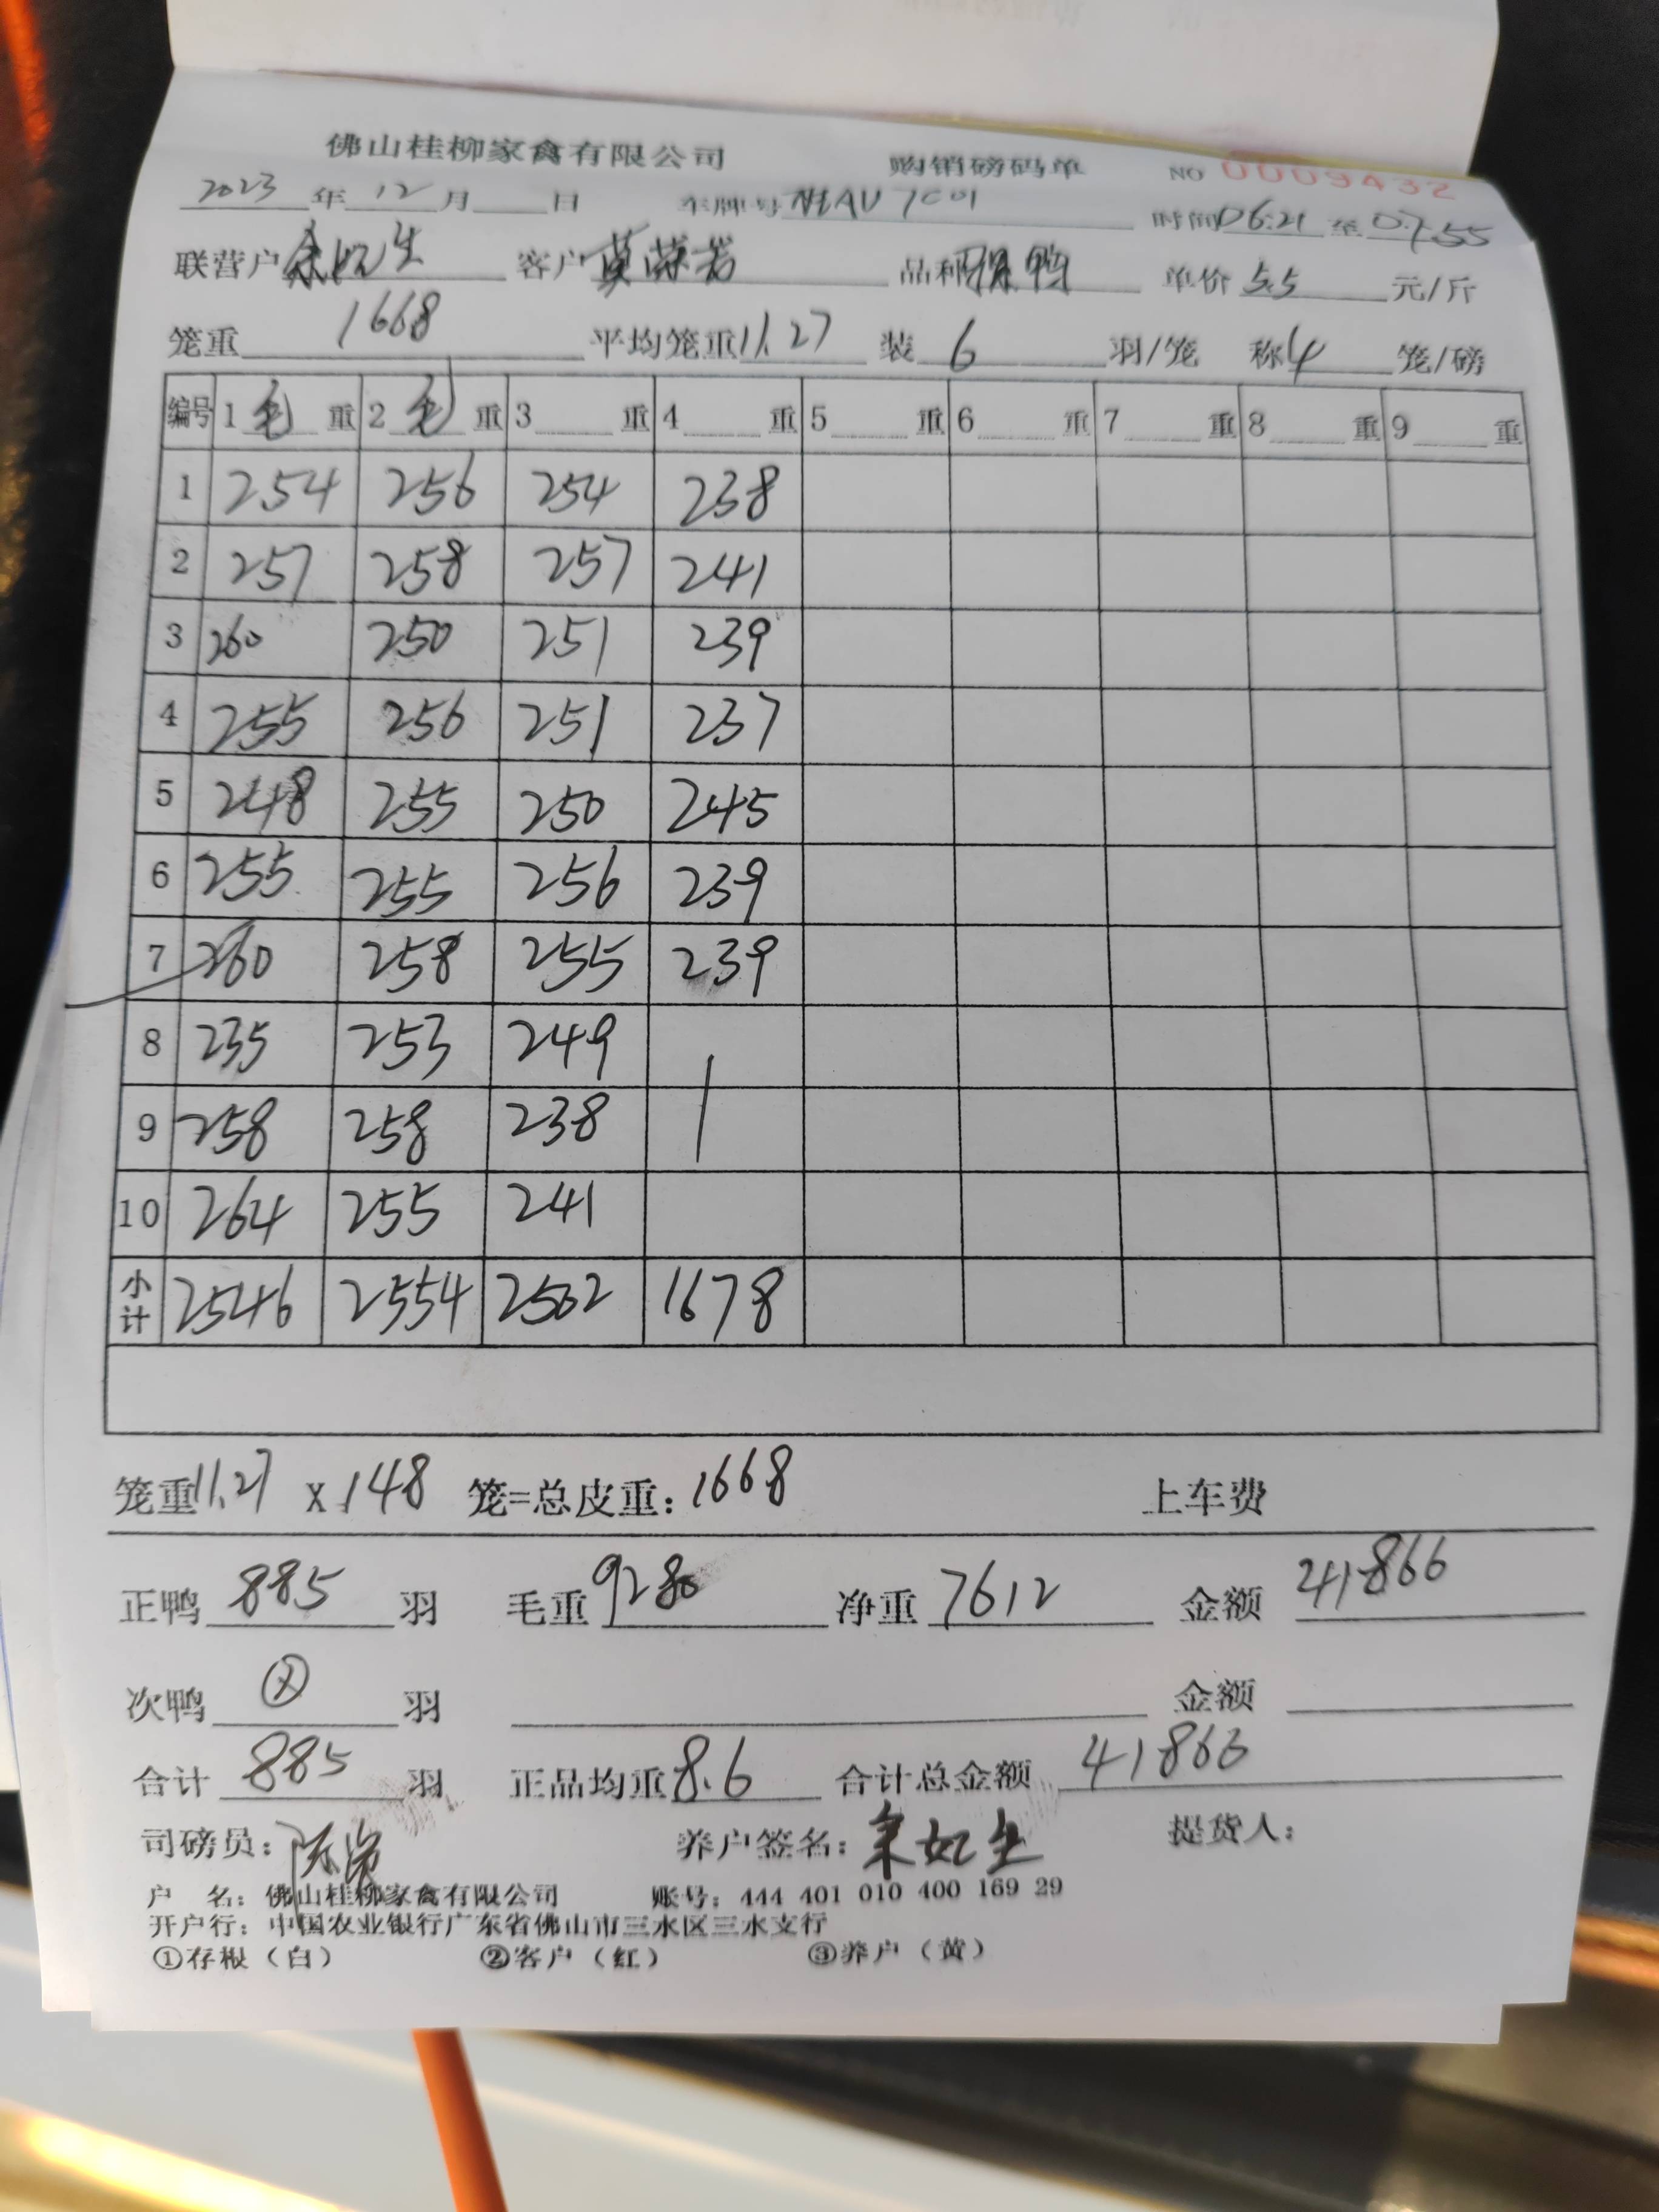 佛山桂柳家禽有限公司 购销磅码单 NO 0009432
2023年12月 日 车牌号 桂AU7C01 时间06:21至07.55
联营户 余如生 客户 莫荣 品种 鸭 单价5.5元/斤
笼重1668 平均笼重11.27 装6羽/笼 称4笼/磅
编号 1毛重 2毛重 3 重 4 重 5 重 6 重 7 重 8 重 9 重
1 254 256 254 238
2 257 258 257 241
3 260 250 251 239
4 255 256 251 237
5 248 255 250 245
6 255 255 256 239
7 260 258 255 239
8 235 253 249
9 258 258 238
10 264 255 241
小计 2546 2554 2502 1678
笼重11.27 X 148 笼=总皮重:1668 上车费
正鸭885羽 毛重9280 净重7612 金额41866
次鸭 羽 金额
合计885羽 正品均重8.6 合计总金额41866
司磅员: 陈 养户签名:余如生 提货人:
户 名: 佛山桂柳家禽有限公司 账号: 444 401 010 400 169 29
开户行: 中国农业银行广东省佛山市三水区三水支行
①存根(白) ②客户(红) ③养户(黄)